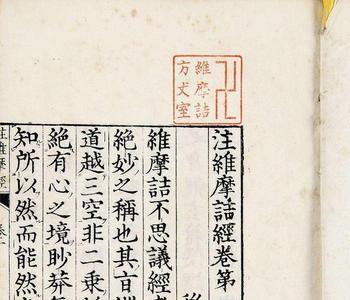 維摩詰
方丈室
注維摩詰經卷第
維摩詰不思議經
絶妙之稱也其旨
道越三空非二乘
絶有心之境眇莽
知所以然而能然
注維摩經